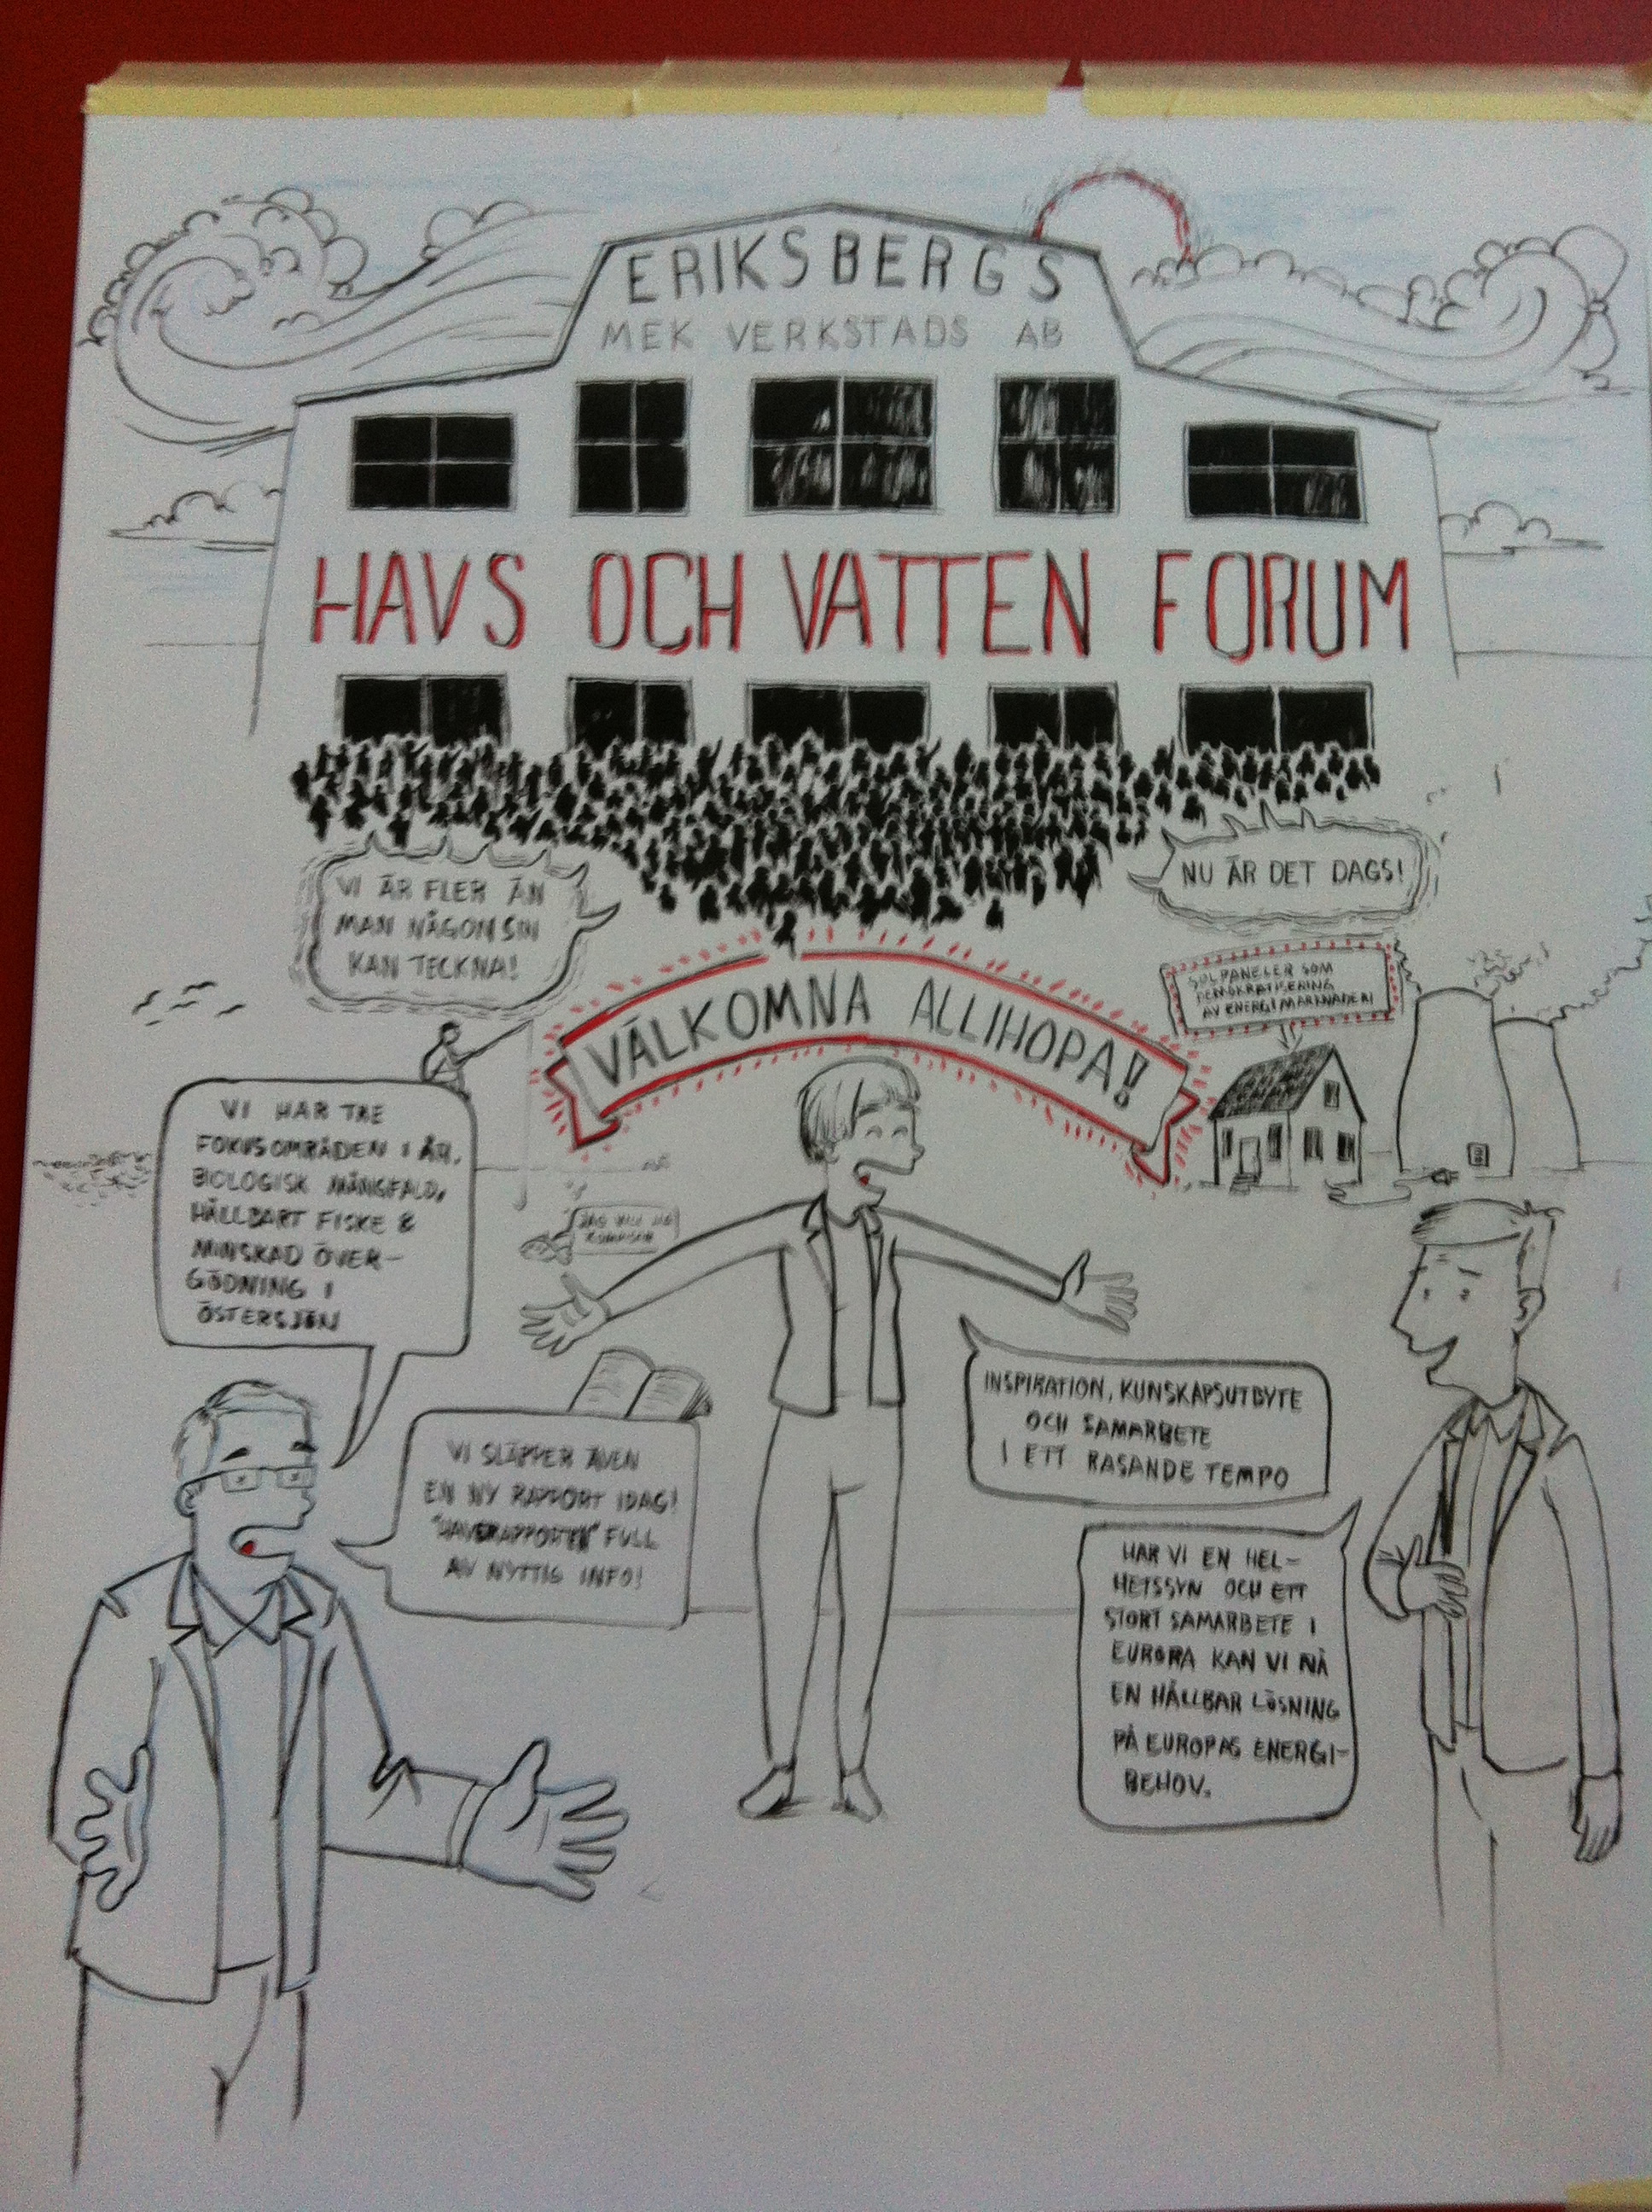 ERIKSBERGS
MEK VERKSTADS AB
HAVS OCH VATTEN FORUM
VI ÄR FLER ÄN
MAN NÅGONSIN
KAN TECKNA!
NU ÄR DET DAGS!
VÄLKOMNA ALLIHOPA!
SOLPANELER SOM
DEMOKRATISERING
AV ENERGIMARKNADEN
VI HAR TRE
FOKUSOMRÅDEN I ÅR.
BIOLOGISK MÅNGFALD,
HÅLLBART FISKE &
MINSKAD ÖVER-
GÖDNING I
ÖSTERSJÖN
JAG VILL HA
VI SLÄPPER ÄVEN
EN NY RAPPORT IDAG!
"HAVSRAPPORTEN" FULL
AV NYTTIG INFO!
INSPIRATION, KUNSKAPSUTBYTE
OCH SAMARBETE
I ETT RASANDE TEMPO
HAR VI EN HEL-
HETSSYN OCH ETT
STORT SAMARBETE I
EUROPA KAN VI NÅ
EN HÅLLBAR LÖSNING
PÅ EUROPAS ENERGI-
BEHOV.